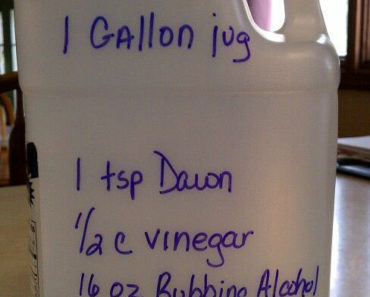 1 GAllon jug
1 tsp Dawn
1/2 c vinegar
16 oz Rubbing Alcohol